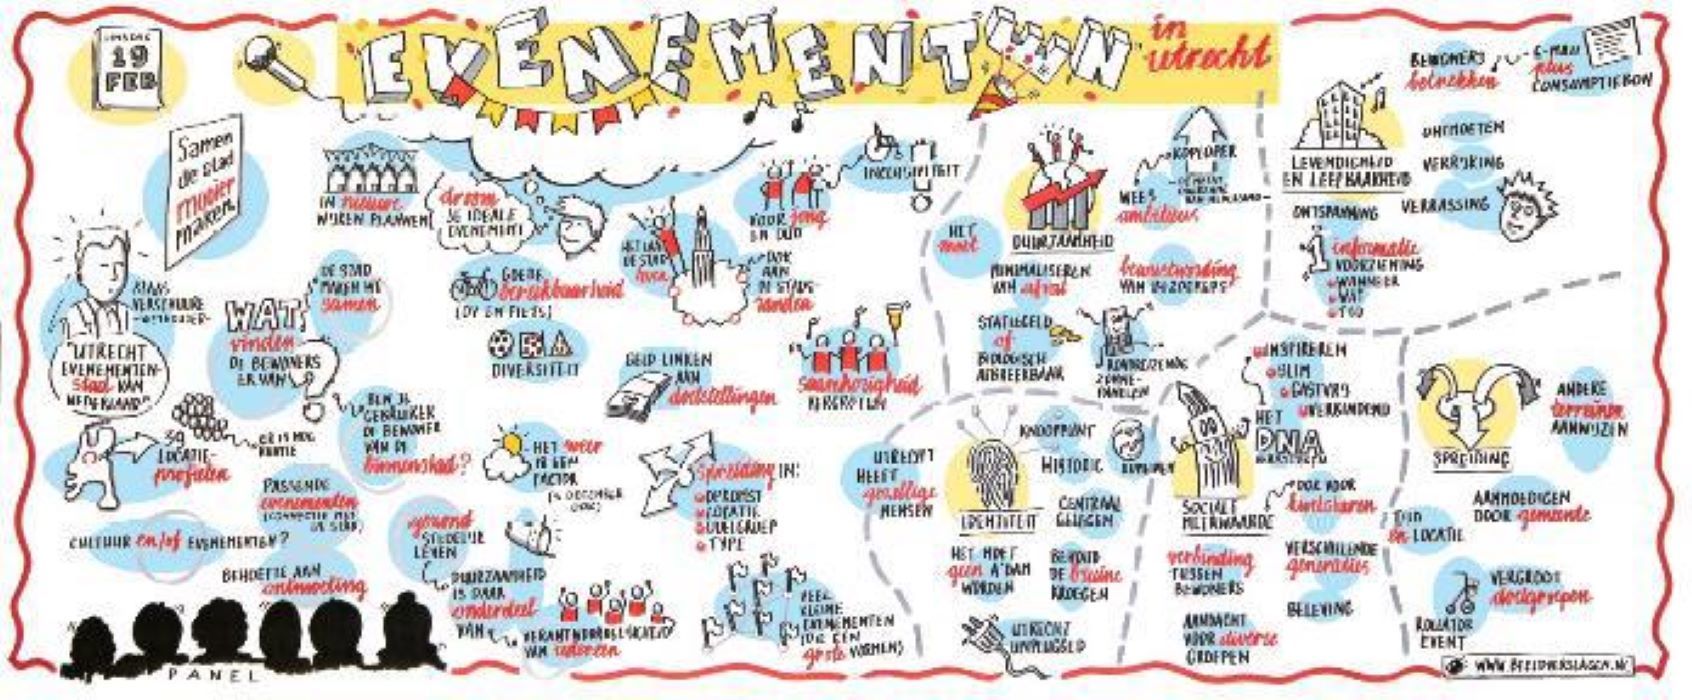 DINSDAG
19
FEB
EVENEMENTEN
in
utrecht
Samen
de stad
mooier
maken
KLAAS
VERSCHUURE
-WETHOUDER-
"UTRECHT
EVENEMENTEN-
stad VAN
NEDERLAND"
WAT
vinden
DE BEWONERS
ER VAN
?
DE STAD
MAKEN WE
samen
IN nieuwe
WIJKEN PLANNEN
droom
JE IDEALE
EVENEMENT
GOEDE
bereikbaarheid
(OV EN FIETS)
DIVERSITEIT
HET VAN
DE STAD
OOK
AAN
DE STADS-
randen
VOOR jong
EN OUD
INCLUSIVITEIT
GELD LINKEN
AAN
doelstellingen
saamhorigheid
VERGROTEN
50
LOCATIE-
profielen
ER IS NOG
RUIMTE
BEN JE
GEBRUIKER
OF BEWONER
VAN DE
binnenstad?
PASSENDE
evenementen
(CONNECTIE MET
DE STAD)
CULTUUR en/of EVENEMENTEN?
BEHOEFTE AAN
ontmoeting
HET weer
IS EEN
FACTOR
(5 DECEMBER
OOK)
gezond
STEDELIJK
LEVEN
DUURZAAMHEID
IS DAAR
onderdeel
VAN
VERANTWOORDELIJKHEID
VAN iedereen
Spreiding IN:
OPKOMST
LOCATIE
DOELGROEP
TYPE
VEEL
KLEINE
EVENEMENTEN
(DIE EEN
grote VORMEN)
PANEL
HET
moet
DUURZAAMHEID
KOPLOPER
WEES
ambitieus
MINIMALISEREN
VAN afval
bewustwording
VAN BEZOEKERS
STATIEGELD
of
BIOLOGISCH
AFBREEKBAAR
ZONNE-
PANELEN
UTRECHT
HEEFT
gezellige
MENSEN
KNOOPPUNT
HISTORIE
DOMPLEIN
CENTRAAL
GELEGEN
IDENTITEIT
HET MOET
geen A'DAM
WORDEN
BEHOUD
DE bruine
KROEGEN
UTRECHT
UNPLUGGED
LEVENDIGHEID
EN LEEFBAARHEID
BEWONERS
betrekken
E-MAIL
plus
CONSUMPTIEBON
ONTMOETEN
VERRIJKING
VERRASSING
ONTSPANNING
informatie
VOORZIENING
WANNEER
WAT
TIJD
INSPIREREN
SLIM
GASTVRIJ
VERBINDEND
HET
DNA
SOCIALE
MEERWAARDE
OOK VOOR
kwetsbaren
verbinding
TUSSEN
BEWONERS
VERSCHILLENDE
generaties
AANDACHT
VOOR diverse
GROEPEN
BELEVING
SPREIDING
ANDERE
terreinen
AANWIJZEN
AANMOEDIGEN
DOOR gemeente
TIJD
en LOCATIE
VERGROOT
doelgroepen
ROLLATOR
EVENT
WWW.BEELDVERSLAGEN.NL